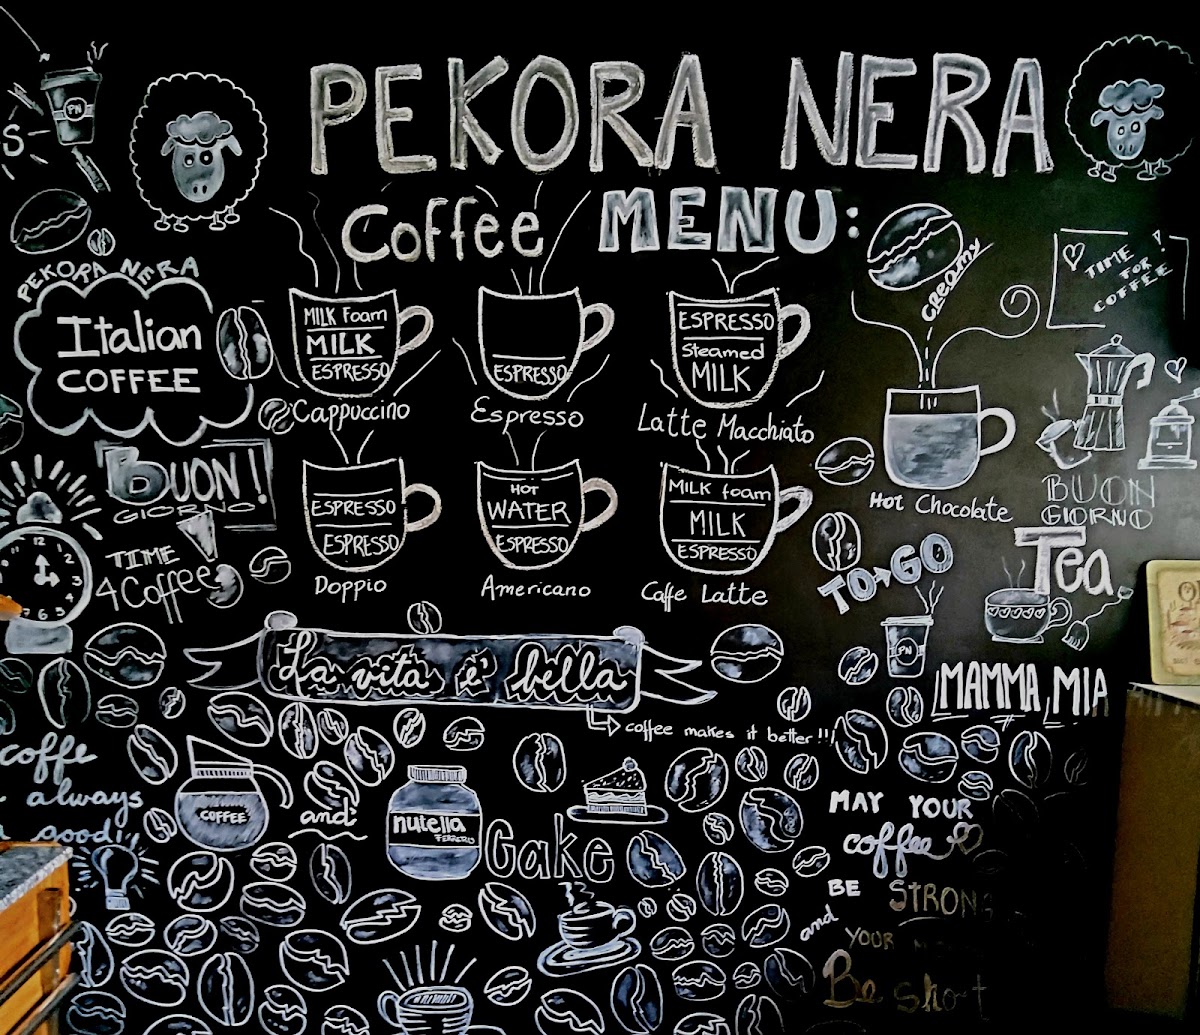 PEKORA NERA
Coffee MENU:
S
PN
PEKORA NERA
Italian
COFFEE
MILK foam
MILK
ESPRESSO
Cappuccino
ESPRESSO
Espresso
ESPRESSO
Steamed
MILK
Latte Macchiato
creamy
Hot Chocolate
TIME
FOR
COFFEE!
BUON!
GIORNO
TIME
4 Coffee
12
3
6
ESPRESSO
ESPRESSO
Doppio
HOT
WATER
ESPRESSO
Americano
MILK foam
MILK
ESPRESSO
Caffe Latte
BUON
GIORNO
TO GO
PN
Tea
MAMMA MIA
La vita è bella
coffee makes it better!!!
coffe
always
good!
COFFEE
and
nutella
FERRERO
Cake
MAY YOUR
coffee
BE STRONG
and
YOUR
Be short